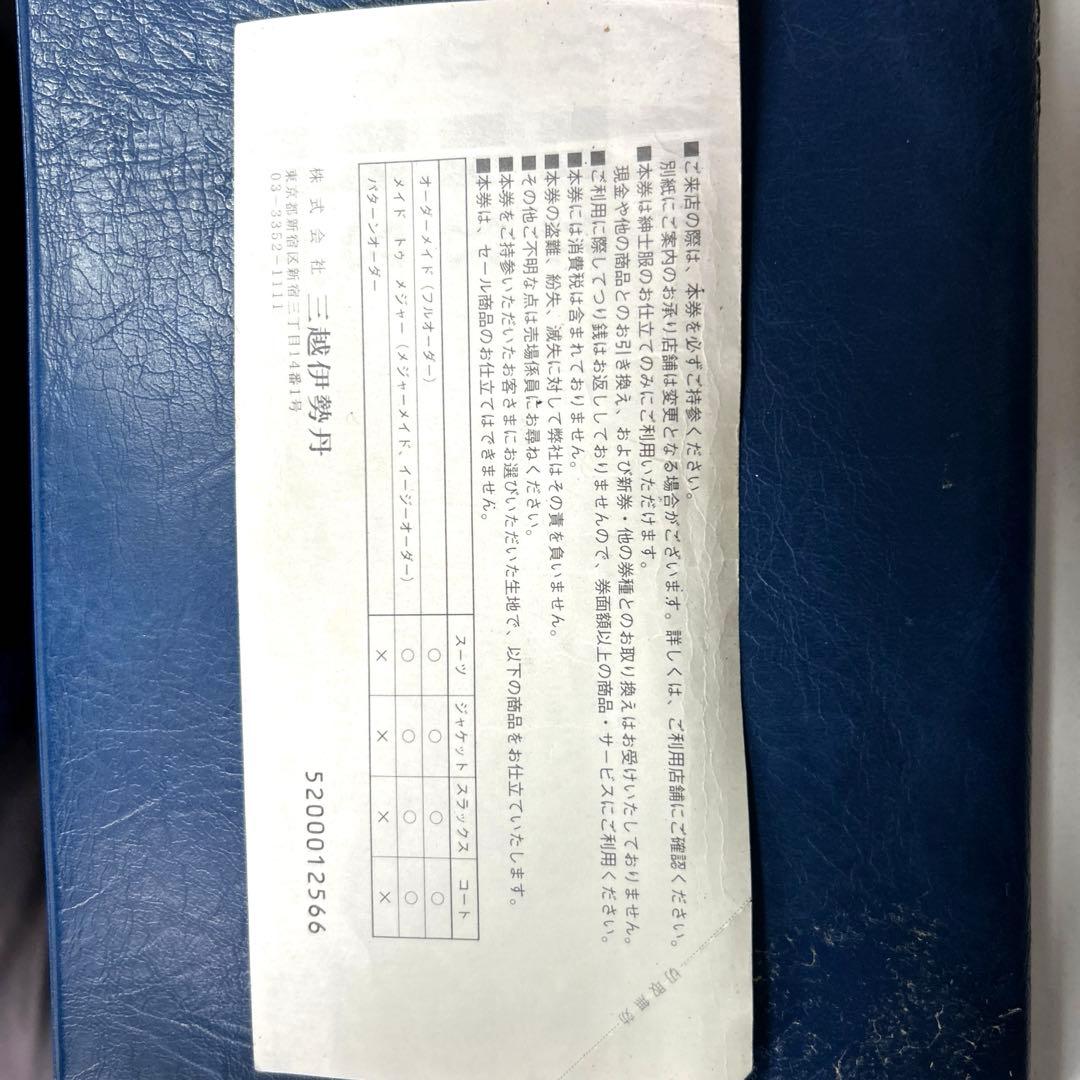 ■ご来店の際は、本券を必ずご持参ください。
別紙にご案内のお承り店舗は変更となる場合がございます。詳しくは、ご利用店舗にご確認ください。
■本券は紳士服のお仕立てのみにご利用いただけます。
現金や他の商品とのお引き換え、および新券・他の券種とのお取り換えはお受けいたしておりません。
■ご利用に際してつり銭はお返ししておりませんので、券面額以上の商品・サービスにご利用ください。
■本券には消費税は含まれておりません。
■本券の盗難、紛失、滅失に対して弊社はその責を負いません。
■その他ご不明な点は売場係員にお尋ねください。
■本券をご持参いただいたお客さまにお選びいただいた生地で、以下の商品をお仕立ていたします。
■本券は、セール商品のお仕立てはできません。
スーツ ジャケット スラックス コート
オーダーメイド(フルオーダー) ○ ○ ○ ○
メイド トゥ メジャー(メジャーメイド、イージーオーダー) ○ ○ ○ ○
パターンオーダー × × × ×
株式会社 三越伊勢丹
東京都新宿区新宿三丁目14番1号
03-3352-1111
5200012566
切取無効